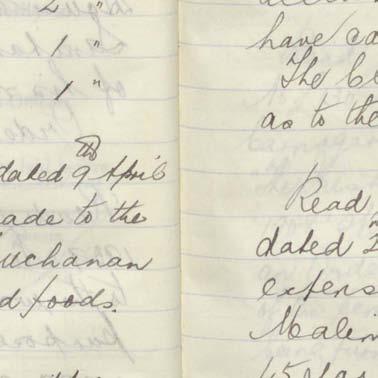 2 "
1 "
1 "
dated 9th April
ade to the
uchanan
d foods.
have ca
The
as to the
Read
dated
expens
Malin